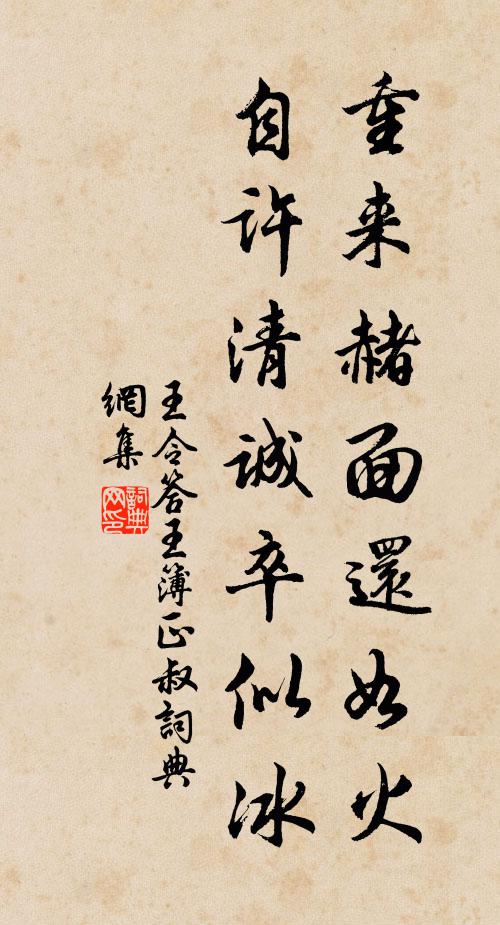 重来赭面還如火
自许清誠卒似冰
王令答王簿正叔詞典
網集
詞典
网印